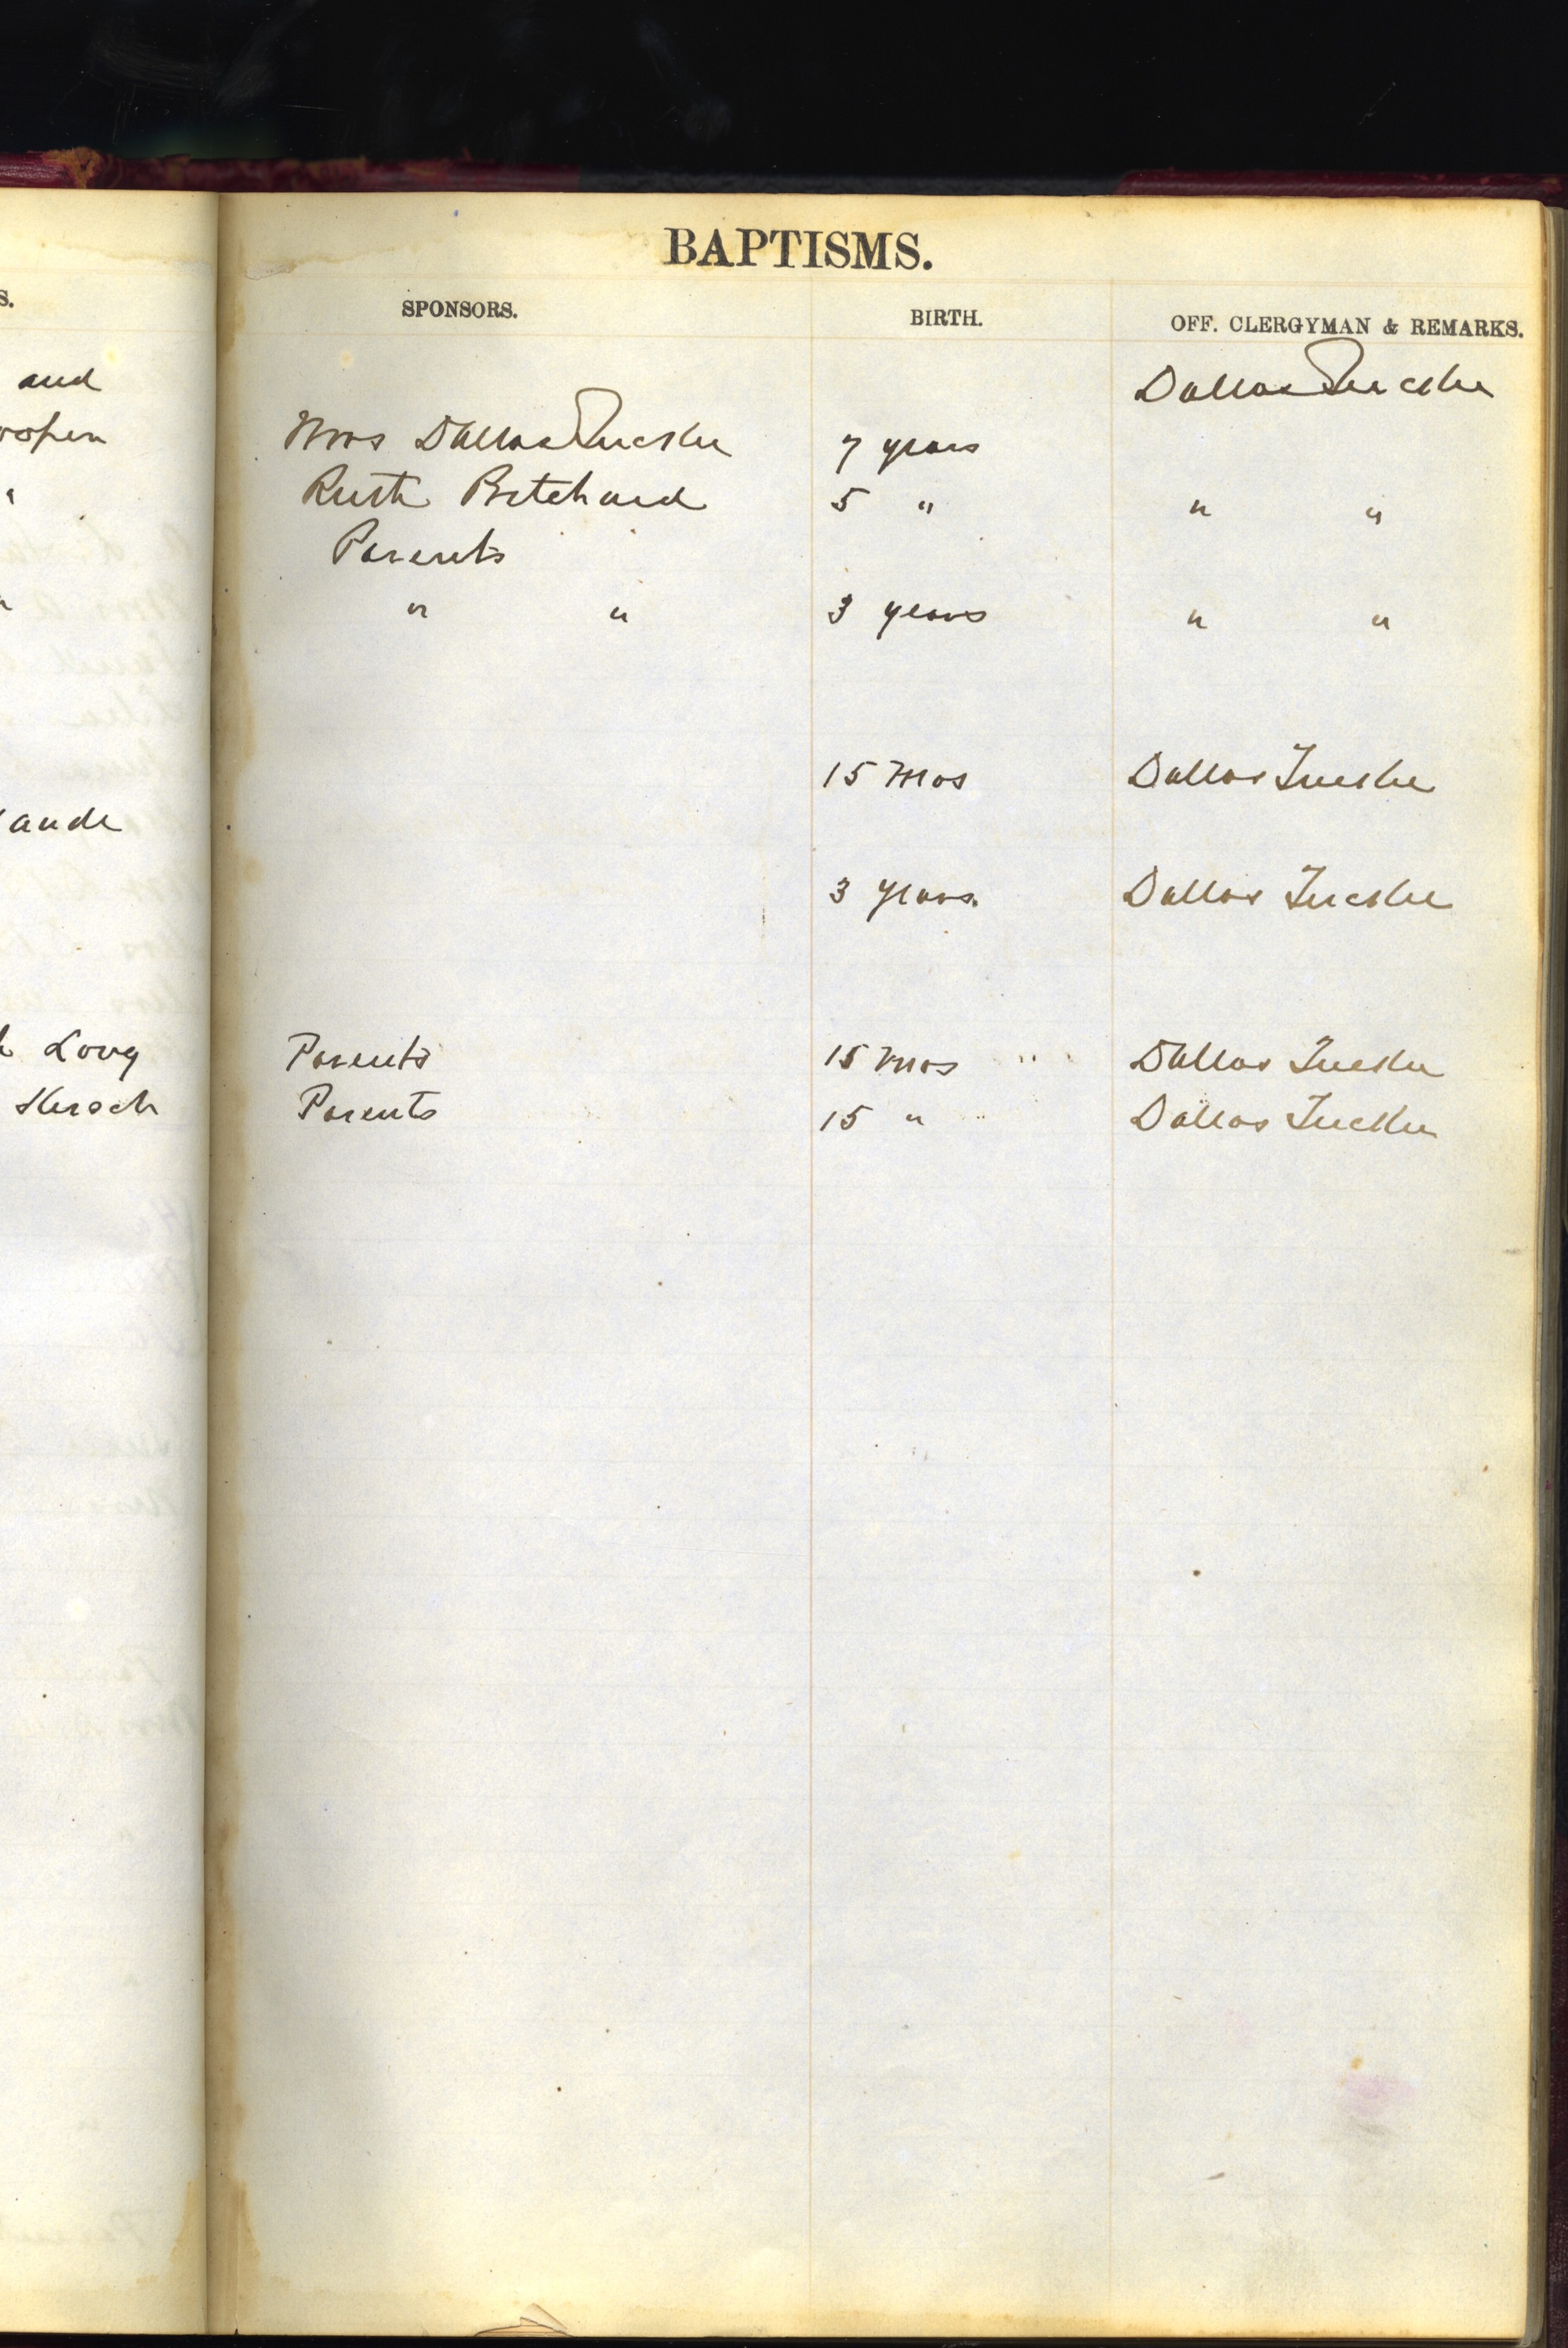 BAPTISMS.
S. SPONSORS. BIRTH. OFF. CLERGYMAN & REMARKS.
and Dallas Tucker
Mrs Dallas Tucker 7 years
Ruth Pritchard 5 " " "
Parents
" " 3 years " "
15 Mos Dallas Tucker
aude
3 years. Dallas Tucker
Long Parents 15 Mos Dallas Tucker
Parents 15 " Dallas Tucker